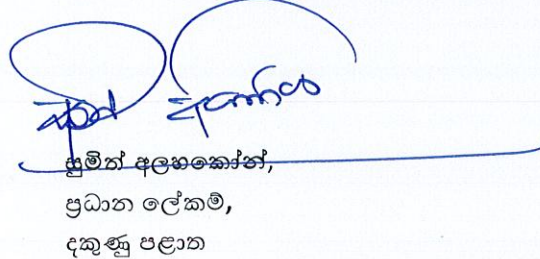 සුමිත් අලහකෝන්,
ප්‍රධාන ලේකම්,
දකුණු පළාත